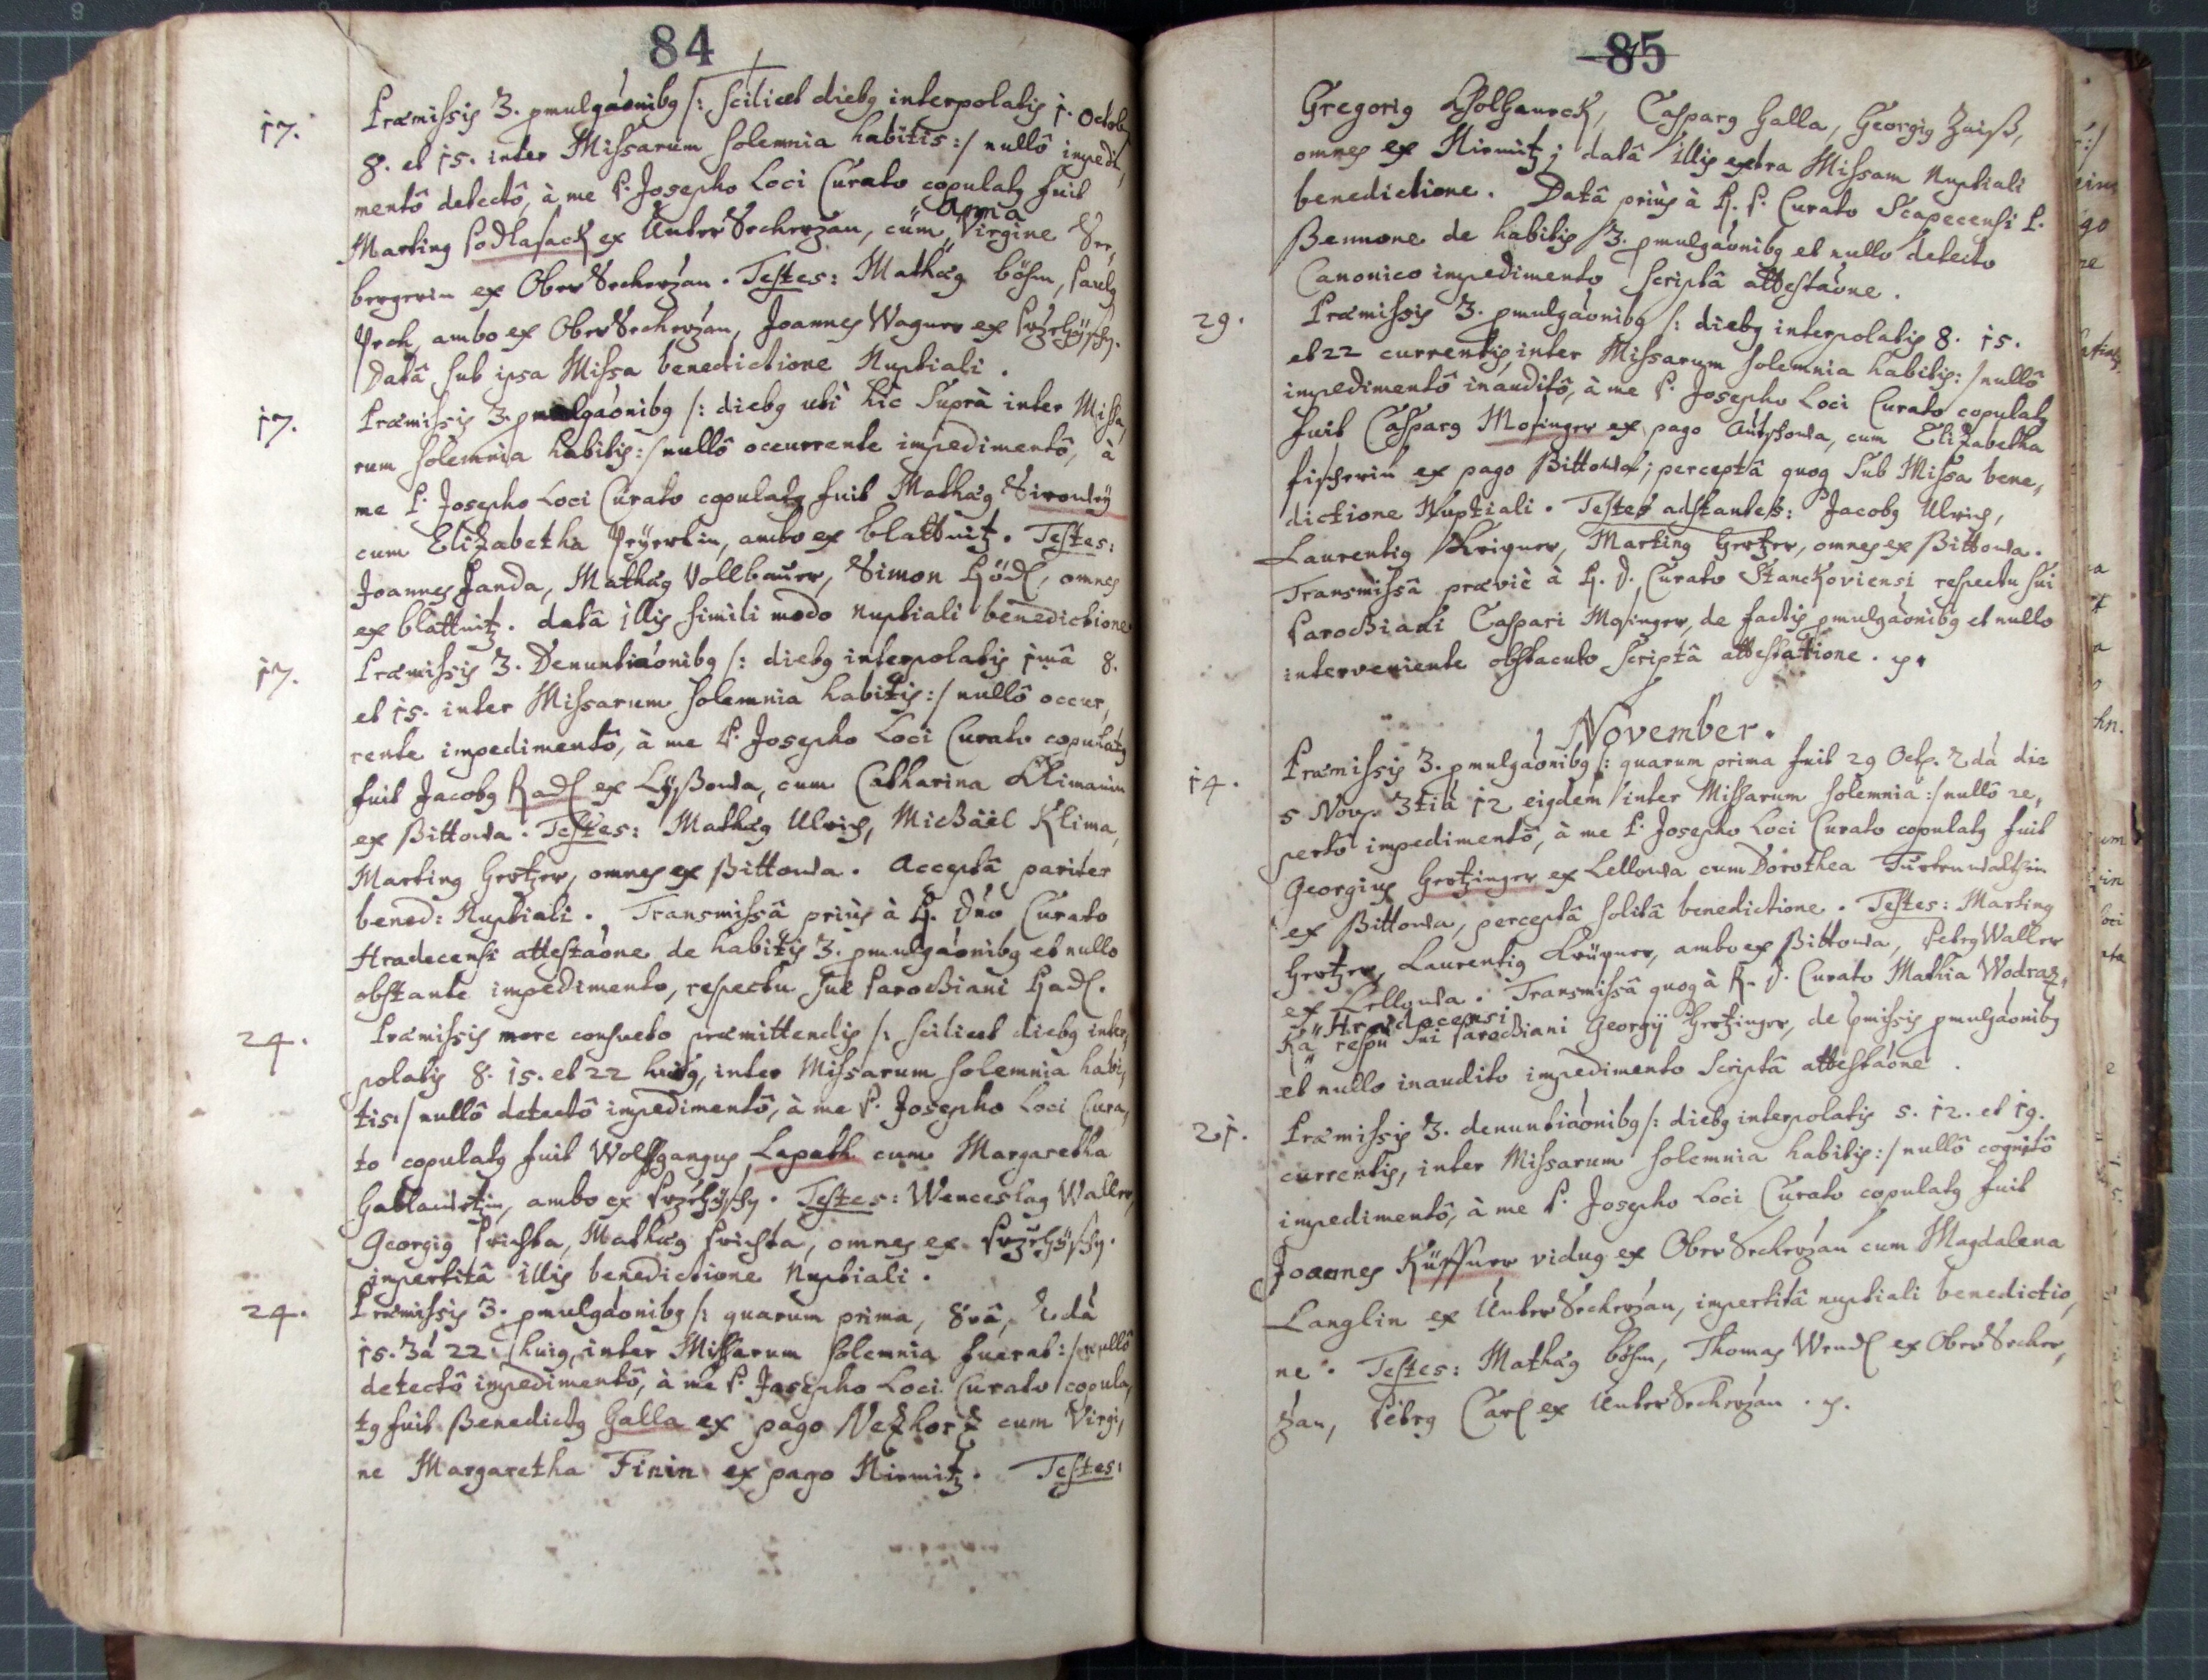 84
17. Præmissis 3. pmulgáonibg /: scilicet diebg interpolatis 1. Octob.
8. et 15. inter Missarum solemnia habitis :/ nullô impedi,
mentô detectô, à me P. Josepho Loci Curato copulatg fuit
Anna
Marting Podlasack ex Unter Sekerzan, cum Virgine Ser,
bergerin ex Ober Sekerzan. Testes: Mathæg Böhm, Paulg
Peck, ambo ex Ober Sekerzan, Joannes Wagner ex
Datâ sub ipsa Missa benedictione Nuptiali.
17. Præmissis 3. pmulgáonibg /: diebg uti hic Suprà inter Missa,
rum solemnia habitis :/ nullô occurrente impedimentô, à
me P. Josepho Loci Curato copulatg fuit Mathæg
cum Elizabetha ambo ex Blattnitz. Testes:
Joannes Janda, Mathæg Vollbauer, Simon Hödl, omnes
ex Blattnitz. datâ illis simili modo Nuptiali benedictione
17. Præmissis 3. Denuntiáonibg /: diebg interpolatis 1mâ 8.
et 15. inter Missarum solemnia habitis :/ nullô occur,
rente impedimentô, à me P. Josepho Loci Curato copulatg
fuit Jacobg Radl ex Lyßowa, cum Catharina Klimanin
ex Bittowa. Testes: Mathæg Ulrich, Michäel Klima,
Marting Gertzer, omnes ex Bittowa. Acceptâ pariter
bened: Nuptiali. Transmissâ priùs à R. Dno Curato
Hradecensi attestáone de habitis 3. pmulgáonibg et nullo
obstante impedimento, respectu sui Parochiani Radl.
24. Præmissis more consueto præmittendis /: scilicet diebg inter,
polatis 8. 15. et 22 huig, inter Missarum solemnia habi,
tis :/ nullô detectô impedimentô, à me P. Josepho Loci Cura,
to copulatg fuit Wolffgangus Lapath cum Margaretha
ambo ex Testes: Wenceslag Waller,
Georgig Prichta, Mathæg Prichta, omnes ex
impertitâ illis benedictione Nuptiali.
24. Præmissis 3. pmulgáonibg /: quarum prima, 8vâ, 2dá
15. 3á 22 huig, inter Missarum solemnia fuerat :/ nullô
detectô impedimentô, à me P. Josepho Loci Curato copula,
tg fuit Benedictg Galla ex pago Nezhorz cum Virgi,
ne Margaretha Finin ex pago Nirmitz. Testes:
85
Gregorig Casparg Galla, Georgig Zaiß,
omnes ex Nirmitz; datâ illis extra Missam Nuptiali
benedictione. Datâ priùs à R. P. Curato Scapecensi P.
Bennone de habitis 3. pmulgáonibg et nullo detecto
Canonico impedimento scriptâ attestáone.
29. Præmissis 3. pmulgáonibg /: diebg interpolatis 8. 15.
et 22 currentis, inter Missarum solemnia habitis :/ nullô
impedimentô inauditô, à me P. Josepho Loci Curato copulatg
fuit Casparg Mosinger ex pago cum Elizabetha
Fischerin ex pago Bittowa; perceptâ quog Sub Missa bene,
dictione Nuptiali. Testes adstantes: Jacobg Ulrich,
Laurentig Krigner, Marting Gertzer, omnes ex Bittowa.
Transmissâ præviè à R. D. Curato Stanckoviensi respectu sui
Parochiani Caspari Mosinger, de factis pmulgáonibg et nullo
interveniente obstaculo scriptâ attestatione. p.
November.
14. Præmissis 3. pmulgáonibg /: quarum prima fuit 29 Octb. 2dá die
5 Novb. 3tiá 12 eigdem inter Missarum solemnia :/ nullô re,
pertô impedimentô, à me P. Josepho Loci Curato copulatg fuit
Georgius Gertzinger ex Lellowa cum Dorothea
ex Bittowa, perceptâ solitâ benedictione. Testes: Marting
Gertzer, Laurentig Krügner, ambo ex Bittowa, Petrg Waller
ex Lellowa. Transmissâ quog à R. D. Curato Mathia Wodraz,
Hradecensi
Ka respu sui Parochiani Georgÿ Gertzinger, de pmissis pmulgáonibg
et nullo inaudito impedimento Scriptâ attestáone.
21. Præmissis 3. denuntiáonibg /: diebg interpolatis 5. 12. et 19.
currentis, inter Missarum solemnia habitis :/ nullô cognitô
impedimentô, à me P. Josepho Loci Curato copulatg fuit
Joannes Küffner vidug ex Ober Sekerzan cum Magdalena
Langlin ex Unter Sekerzan, impertitâ nuptiali benedictio,
ne. Testes: Mathæg Böhm, Thomas Wendl ex Ober Seker,
zan, Petrg Carl ex Unter Sekerzan. p.